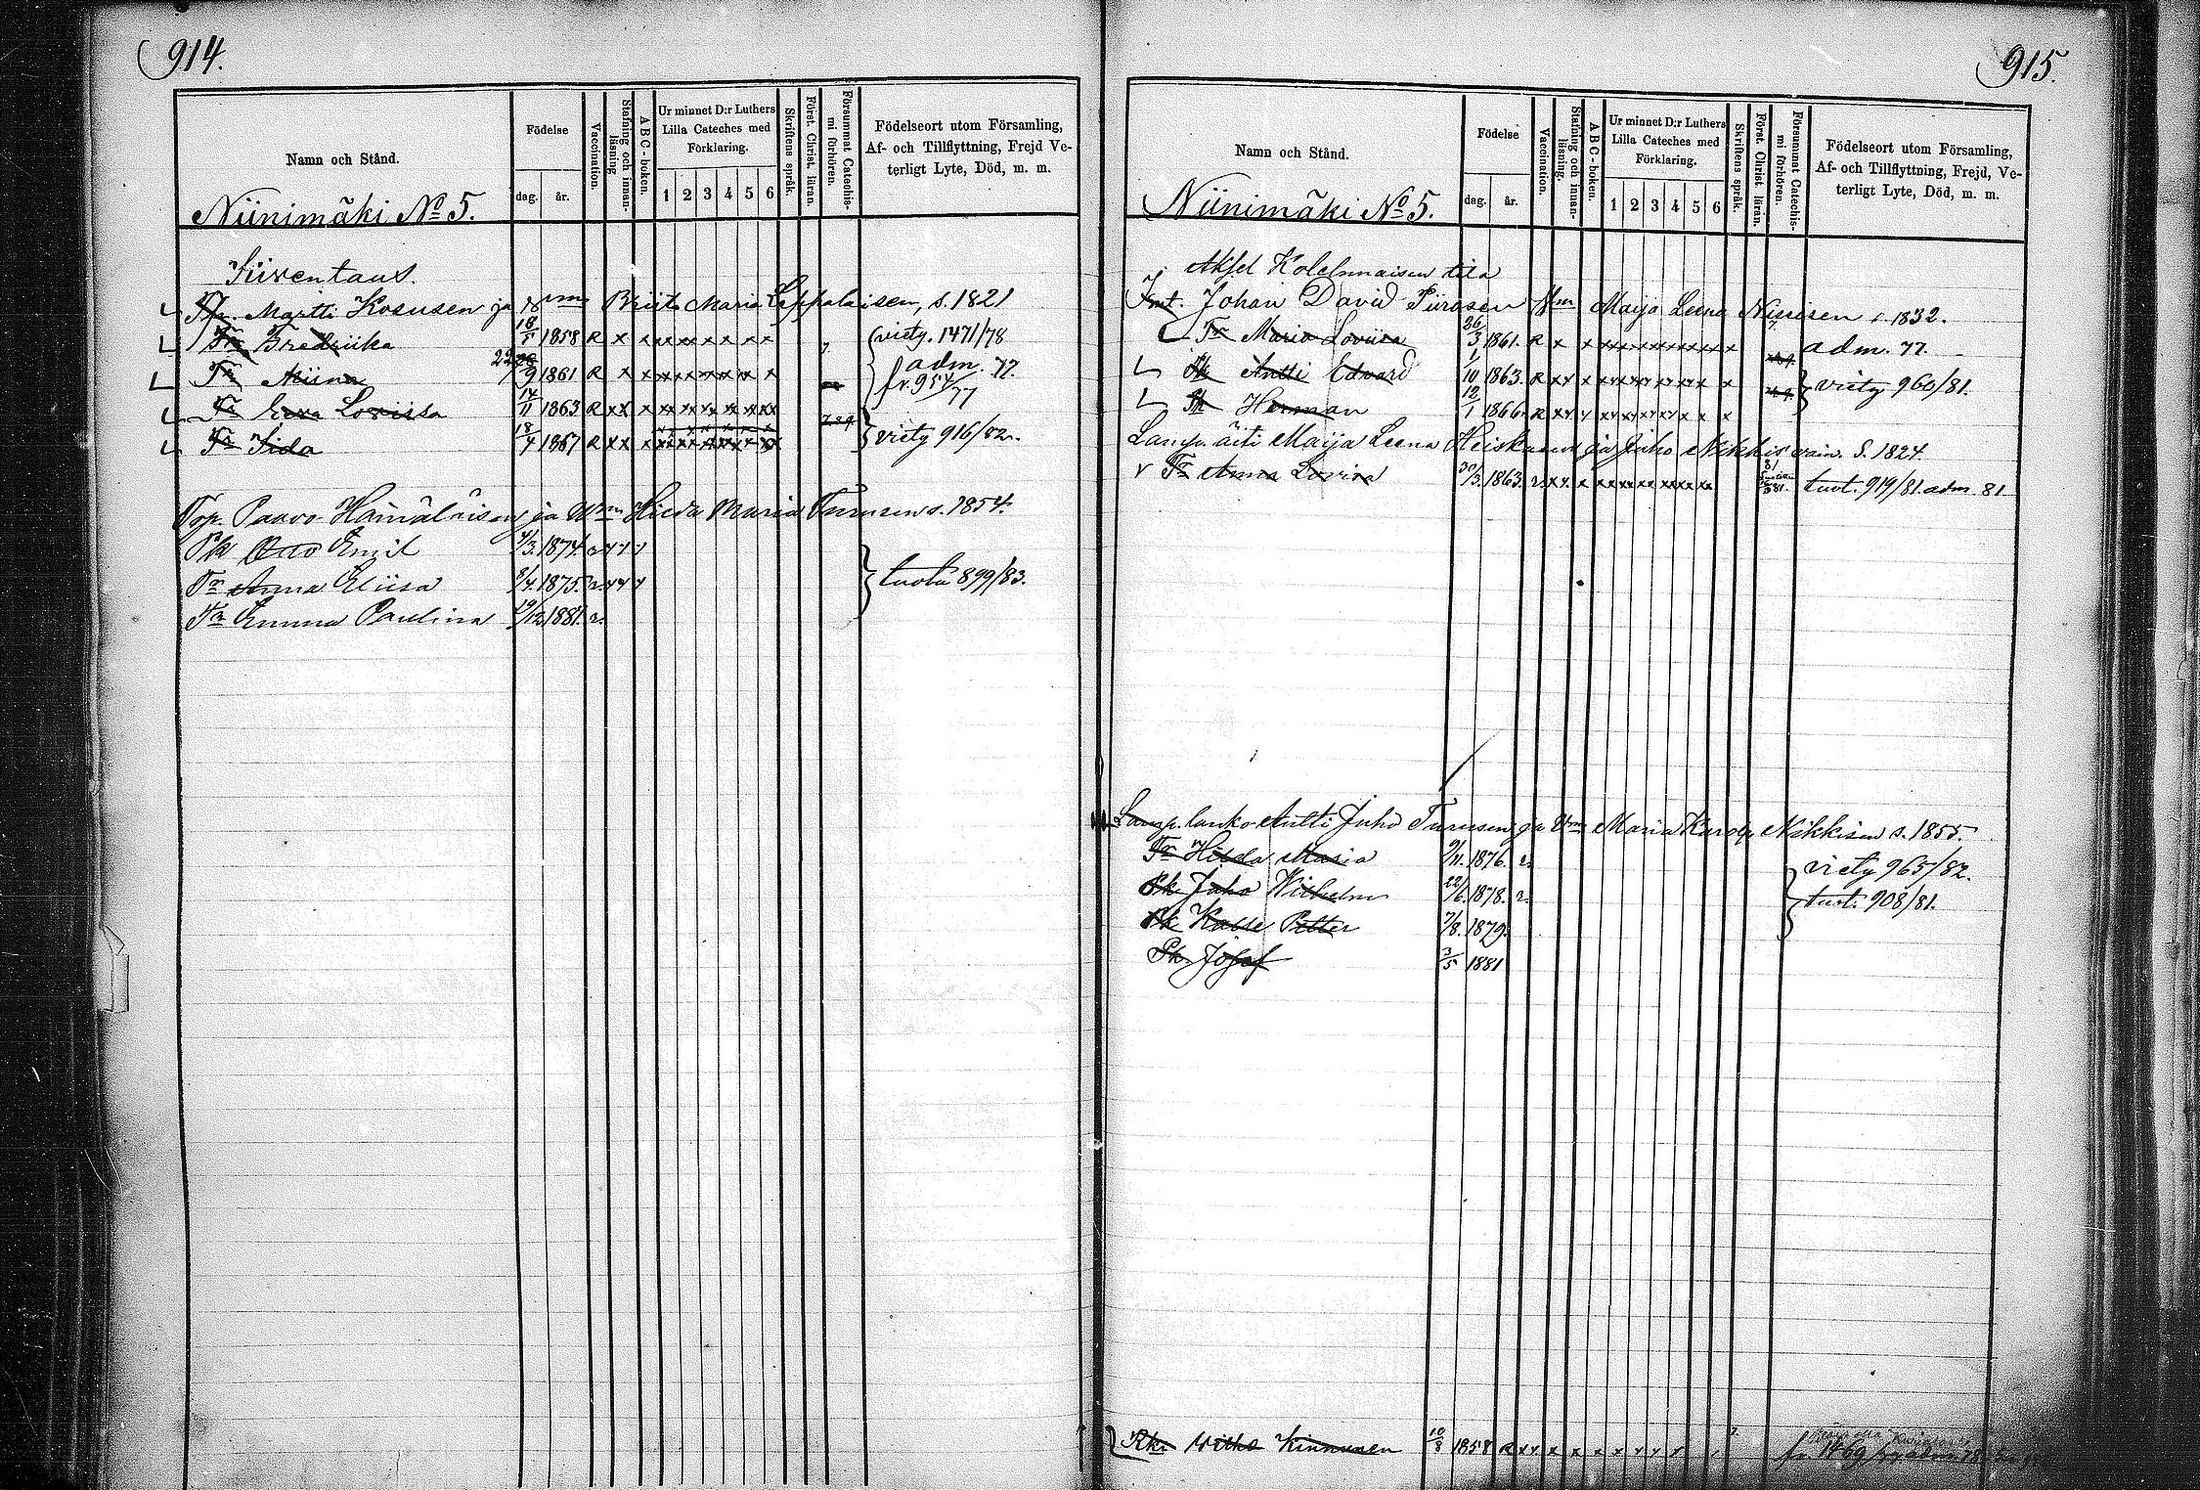 914.
Namn och Stånd.
Födelse
dag.
år.
Vaccination.
Stafning och innan-
läsning
ABC-boken.
Ur minnet D:r Luthers
Lilla Cateches med
Förklaring.
1 2 3 4 5 6
Skriftens språk.
Först. Christ. läran.
Försummat Catechis-
mi förhören.
Födelseort utom Församling,
Af- och Tillflyttning, Frejd Ve-
terligt Lyte, Död, m. m.
Niinimäki No 5.
Martti Kosusen ja Vmn Briita Maria Leppälaisen, s. 1821
Tr Fredriika 18/5 1858 R x x x viety. 1471/78
Tr Miina 9 1861 R x x adm. 77.
fr. 954/77
Tr Eeva Lovissa 14/11 1863 R x x x
Tr Iida 18/4 1867 R x x x viety 916/82.
Paavo Hämäläisen ja Vmn Hilda Maria Turunen s. 1854.
Pk Otto Emil 4/3 1874
Tr Anna Eliisa 8/4 1875. tuota 899/83.
Tr Emma Paulina 19/12 1881.
915.
Namn och Stånd.
Födelse
dag.
år.
Vaccination.
Stafning och innan-
läsning.
ABC-boken.
Ur minnet D:r Luthers
Lilla Cateches med
Förklaring.
1 2 3 4 5 6
Skriftens språk.
Först. Christ. läran.
Försummat Catechis-
mi förhören.
Födelseort utom Församling,
Af- och Tillflyttning, Frejd, Ve-
terligt Lyte, Död, m. m.
Niinimäki No 5.
Aksel Kolehmaisen tila
Johan David Piirosen Maija Leena Nissisen s. 1832.
Tr Maria Loviisa 26/3 1861. R x x adm. 77.
Pk Antti Edvard 1/10 1863. R x x x viety 960/81.
Pk Herman 12/1 1866. R
Lamp. äiti Maija Leena Heiskanen ja Juho Nikkis vain. S. 1824.
Tr Anna Lovisa 1863. tuot. 919/81. adm. 81
Lamp. lanko Antti Juho Turusen ja Vmn Maria Karol. Nikkisen s. 1855.
Tr Hilda Maria 9/11. 1876. viety 965/82.
Pk Juho Wilhelm 22/6. 1878. tuot. 908/81.
Pk Kalle Petter 7/8. 1879.
Pk Josef 3/5 1881
Kinnunen 10/8 1858 R